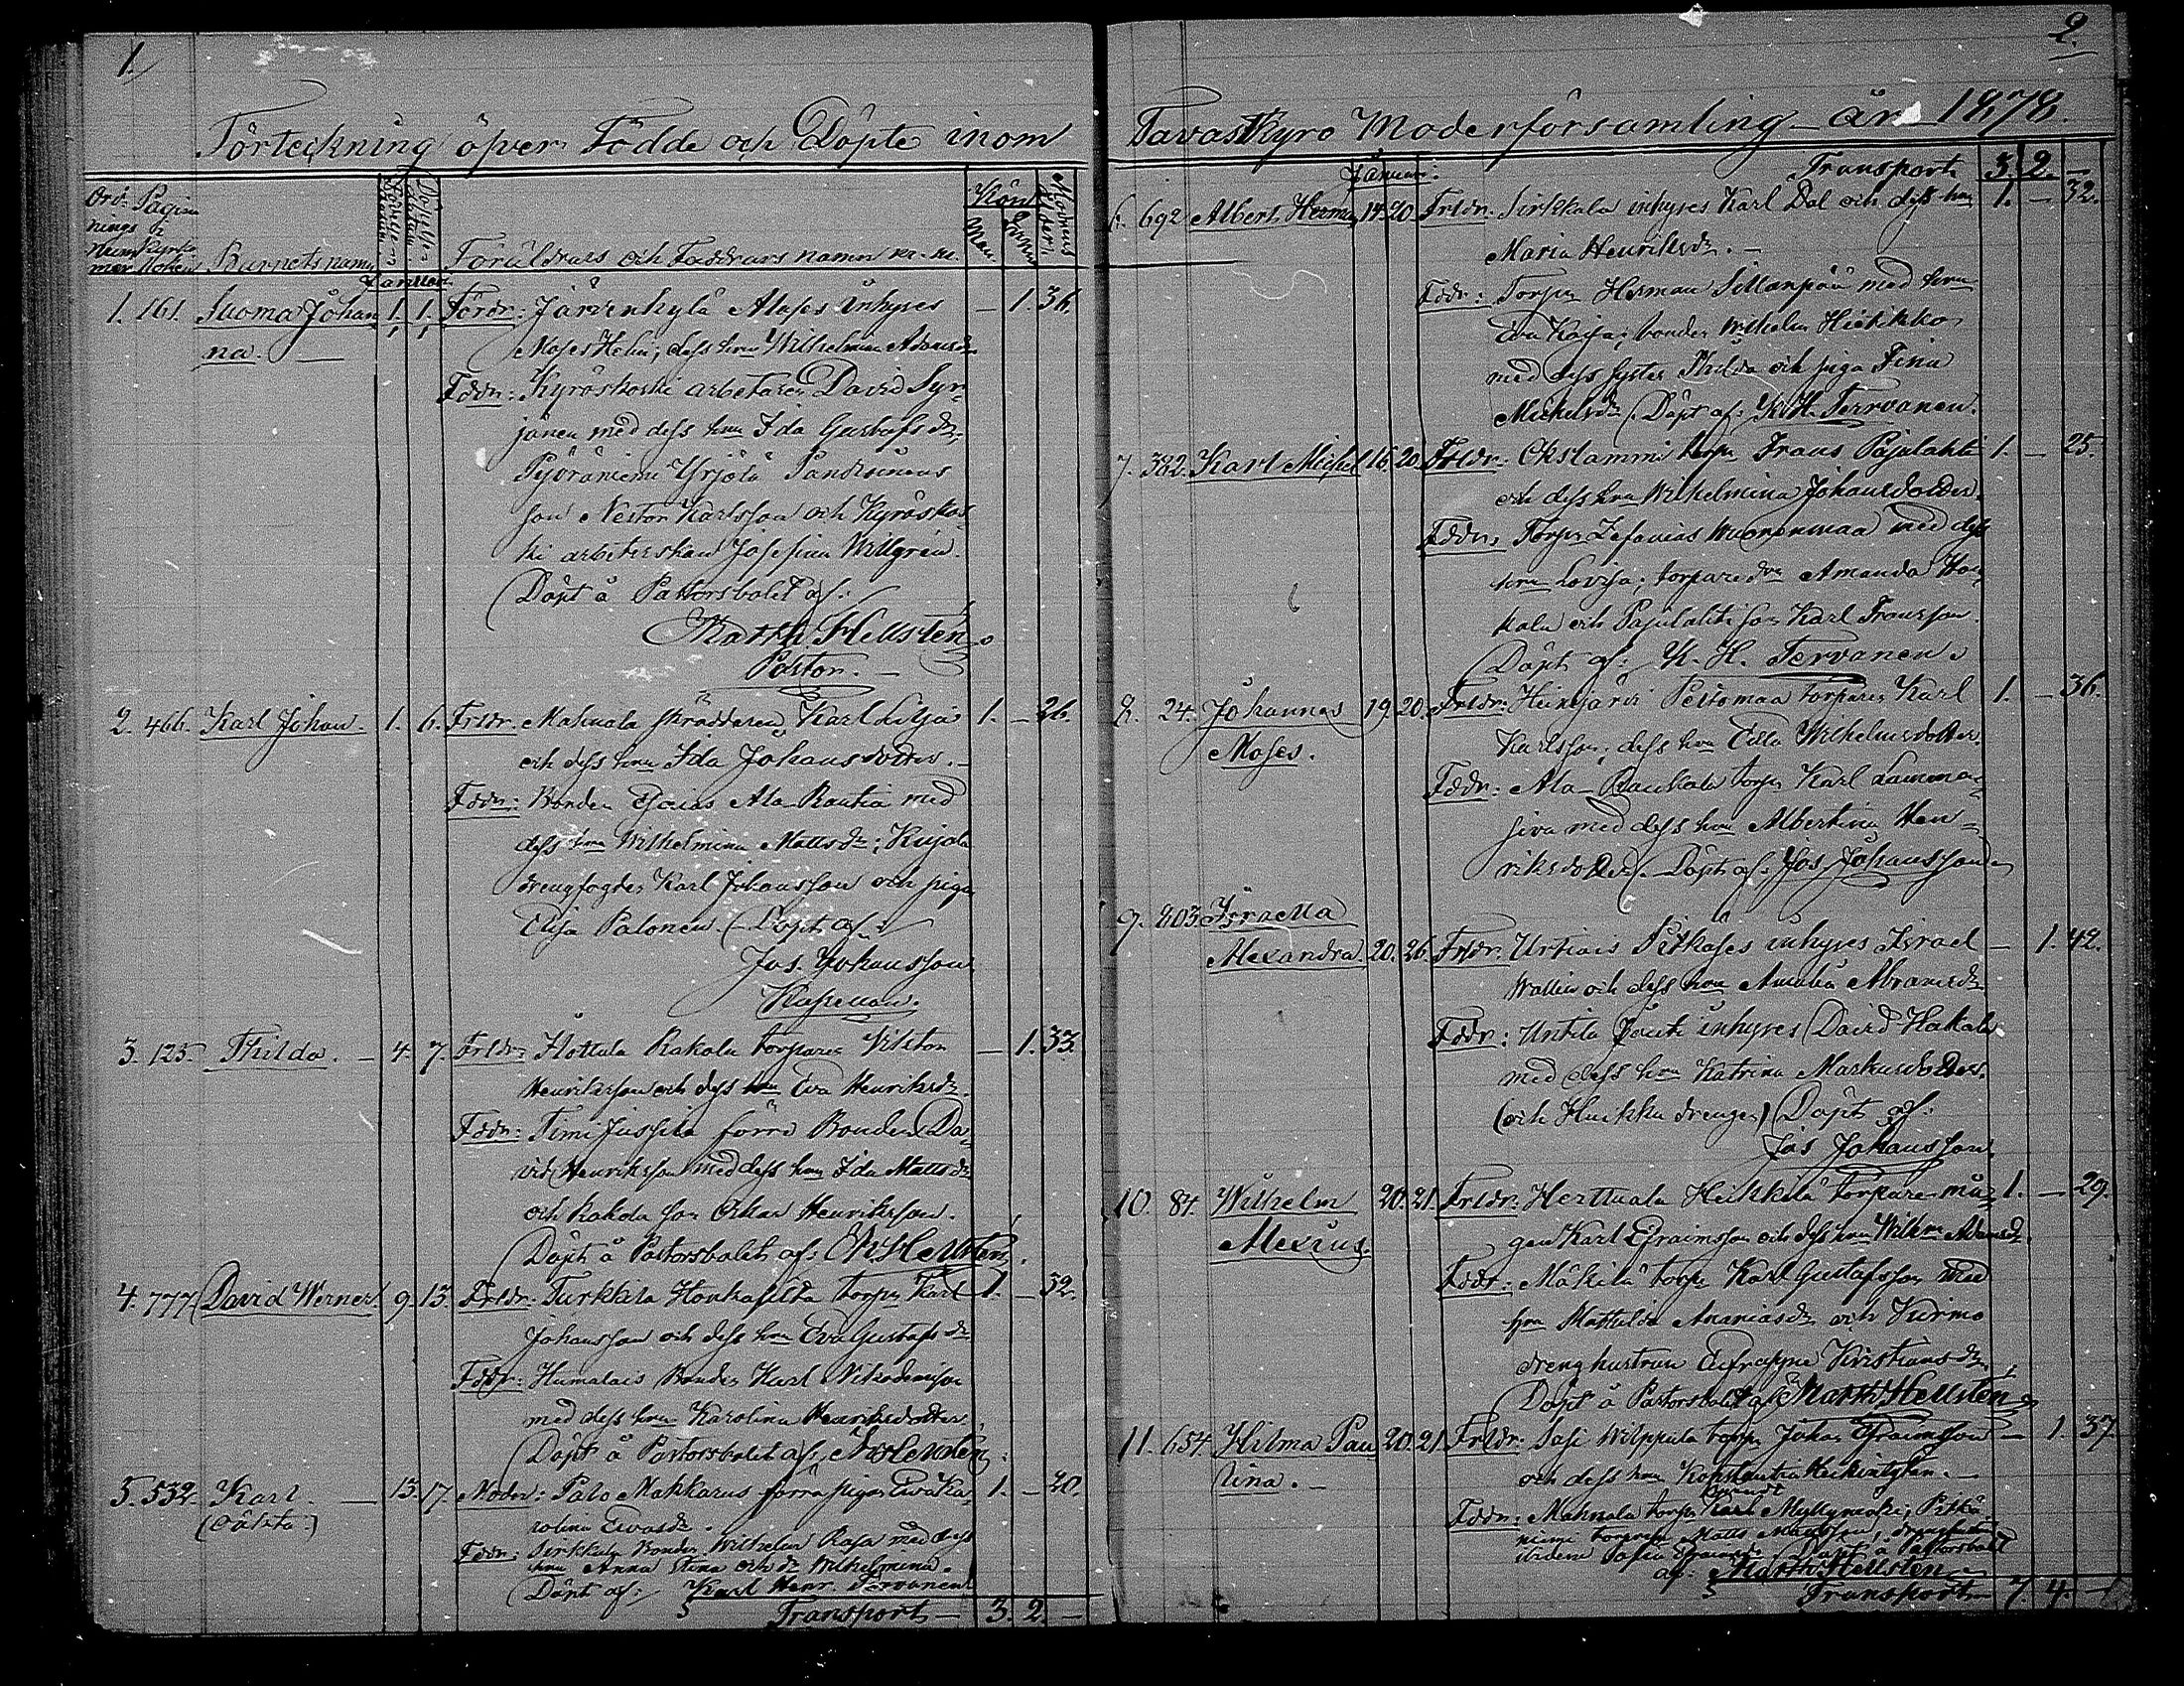 1.
Förteckning öfver Födde och Döpte inom
Ord- nings Num mer
Pagin i Kyrko boken
Barnets namn
Födelse-
Dopets-
Föräldrars och Faddrars namn m.m.
Kön
Man
Qvinn
Modrens ålder
Januari
1. 161. Suoma Johan 1. 1. Fördr: Järvenkylä Moses inhyses — 1. 36.
na. — Moses Helin, dess hru Wilhelmina Adamsdr
Fddr: Kyröskoski arbetaren David Syr-
jänen med dess hru Ida Gustafsdr
Yrjölä
son Nestor Karlsson och Kyröskos-
ki arbeterskan Josefina Willgrén.
Döpt å Pastorsbolet af:
Matth. Hellstén
Pastor. —
2. 466. Karl Johan. 1. 6. Frldr. Mahnala skräddaren Karl Lilja 1. — 26.
och dess hru Ida Johansdotter. —
Fddr: Bonden Esaias Ala-Rautia med
dess hru Wilhelmina Mattsdr; Kujala
drengfogden Karl Johansson och piga
Elisa Palonen. Döpt af:
Jos. Johansson
Kapellan.
3. 125. Thilda. — 4. 7. Frldr. Flottula Rakola torparen Viktor — 1. 33.
Henriksson och dess hru Eva Henriksdr.
Fddr: Timi Jussila förra Bonden Da-
vid Henriksson med dess hru Ida Mattsdr
och Rakola son Oskar Henriksson.
Döpt å Pastorsbolet af: M. Hellstén.
4. 777. David Werner. 9. 13. Frldr: Turkkila Honkasilta torpn Karl 1. — 32.
Johansson och dess hru Eva Gustafsdr
Fddr: Humalais Bonden Karl Nikodemusson
med dess hru Karolina Henriksdotter.
Döpt å Pastorsbolet af: M. Hellstén
5. 532. Karl. — 13. 17. Moder: Palo Makkarus förra pigan Eva Ka- 1. — 20.
(oäkta) rolina Evasdr.
Fddr: Sirkkala Bonden Wilhelm Rasa med dess
hru Anna Stina och dr Wilhelmina.
Döpt af: Karl Henr. Tervanen
Transport — 3. 2. —
2.
Tavastkyro Moderförsamling — år — 1878.
Januari.
Transport 3. 2. —
6. 692 Albert Herman 14. 20. Frldr: Sirkkala inhyses Karl Dal och dess hru 1. — 32.
Maria Henriksdr. —
Fddr: Torpn Herman Sillanpää med hru
Eva Kaisa; bonden Wilhelm Hietikko
med dess syster Thilda och piga Fina
Michelsdr. Döpt af: K. H. Tervanen.
7. 382. Karl Michel 16. 20. Frldr: Okslammi torpn Frans Pajulahti 1. — 25.
och dess hru Wilhelmina Johansdotter.
Fddr: Torpn Zefanias Wuorenmaa med dess
hru Lovisa; torparedr Amanda Ha-
kala och Pajulahti son Karl Fransson.
Döpt af: K. H. Tervanen.
8. 24. Johannes 19. 20. Frldr: Heinijärvi Peltomaa torparen Karl 1. — 36.
Moses. Karlsson; dess hru Edla Wilhelmsdotter.
Fddr: Ala-Raukala torpn Karl Lamma-
siva med dess hru Albertina Hen-
riksdotter. Döpt af: Jos. Johansson
9. 803. Israella
Alexandra. 20. 26. Frldr: Urtiais Pitkäses inhyses Israel — 1. 42.
Wallin och dess hru Amalia Abramsdr
Fddr: Untila Jouti inhyses David Hakala
med dess hru Katrina Markusdotter.
(och Huikka drengen) Döpt af:
Jos Johansson.
10. 84. Wilhelm 20. 21. Frldr: Herttuala Heikkilä torpare må- 1. — 29.
Alexius. gen Karl Efraimsson och dess hru Wilhma Adamsdr
Fddr: Mäkilä torpn Karl Gustafsson med
hru Mathilda Ananiasdr och Kurmo
drenghustrun Eufrosyne Kristiansdr
Döpt å Pastorsbolet af Matth. Hellstén
11. 654. Hilma Pau 20. 21. Frldr: Sasi Wilppula torpn Johan Efraimsson — 1. 37.
lina. — och dess hru Konstantia Heikintytär. —
Fddr: Mahnala torpn Karl Myllymäki; Pitkä-
niemi torparen Matts Mattsson,
Sofia Efraimsdr. Döpt å Pastorsbolet
af: Matth. Hellstén
Transport — 7. 4. —